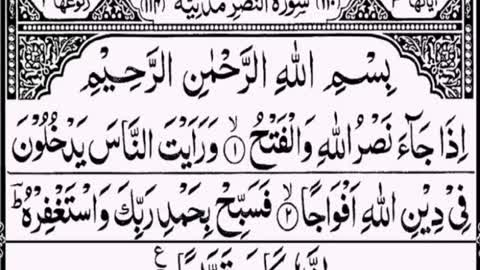 اٰيَاتُهَا ٣ (١١٠) سُوْرَةُ النَّصْرِ مَدَنِيَّةٌ (١١٤) رُكُوْعُهَا ١
بِسْمِ اللهِ الرَّحْمٰنِ الرَّحِيْمِ
اِذَا جَآءَ نَصْرُ اللهِ وَالْفَتْحُ ۙ‏﴿۱﴾ وَرَاَيْتَ النَّاسَ يَدْخُلُوْنَ
فِىْ دِيْنِ اللهِ اَفْوَاجًا ۙ‏﴿۲﴾ فَسَبِّحْ بِحَمْدِ رَبِّكَ وَاسْتَغْفِرْهُ ؕ